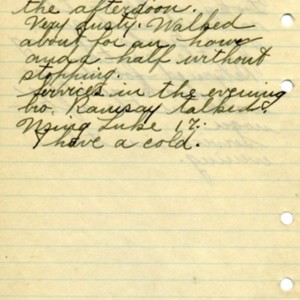 the afternoon.
Very dusty. Walked
about for an hour
and a half without
stopping.
Services in the evening
bro. Ramsay talked.
Using Luke 17.
I have a cold.